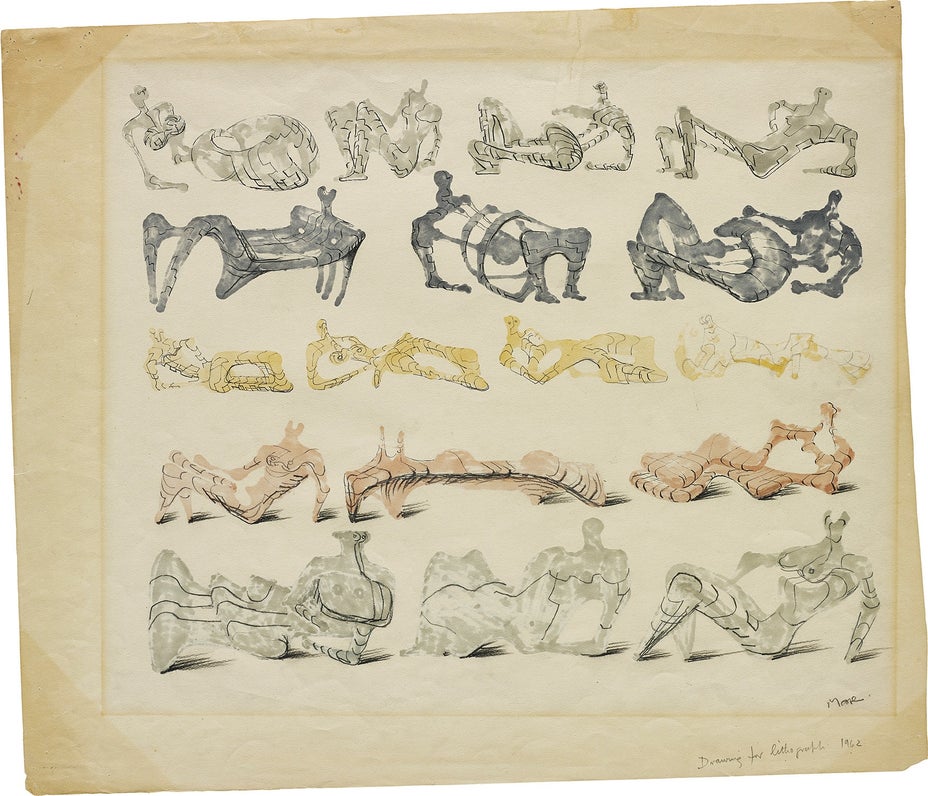 Moore.
Drawing for lithograph 1962